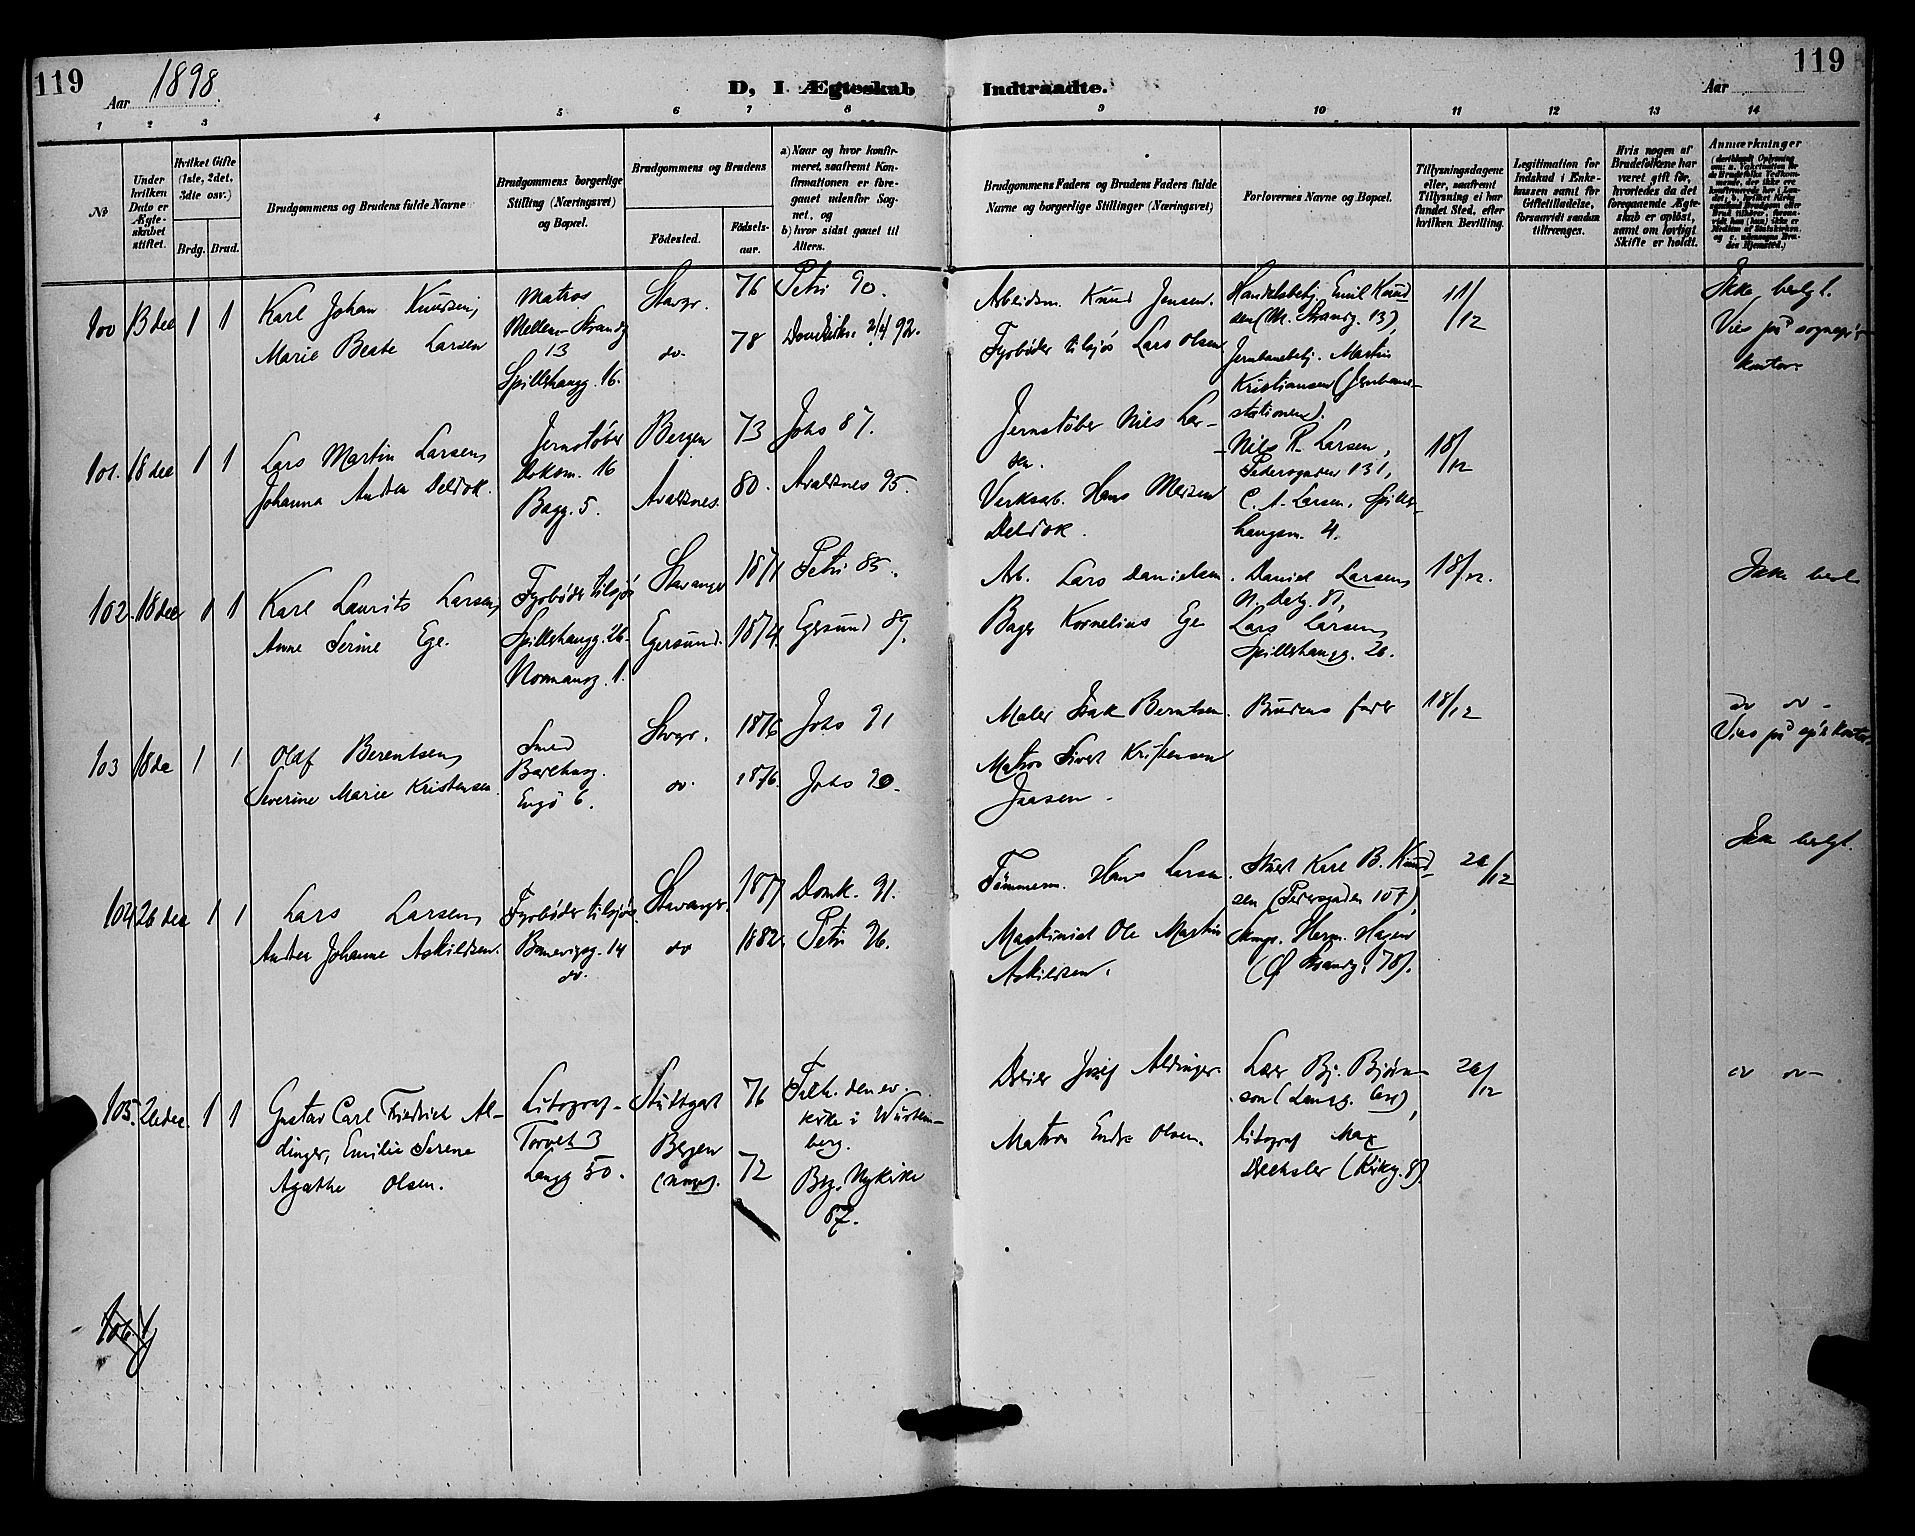 119
Aar 1898.
D, I Ægteskab Indtraadte.
Aar
119
1 2 3 4 5 6 7 8 9 10 11 12 13 14
No
Under hvilken Dato er Ægteskabet stiftet.
Hvilket Gifte (1ste, 2det, 3die osv.)
Brdg. Brud.
Brudgommens og Brudens fulde Navne
Brudgommens borgerlige Stilling (Næringsvei) og Bopæl.
Brudgommens og Brudens
Fødested.
Fødselsaar.
a) Naar og hvor konfirmeret, saafremt Konfirmationen er foregaaet udenfor Sognet, og
b) hvor sidst gaaet til Alters.
Brudgommens Faders og Brudens Faders fulde Navne og borgerlige Stillinger (Næringsvei)
Forlovernes Navne og Bopæl.
Tillysningsdagene eller, saafremt Tillysning ei har fundet Sted, efter hvilken Bevilling.
Legitimation for Indskud i Enkekassen samt for Giftetilladelse, forsaavidt saadan tiltrænges.
Hvis nogen af Brudefolkene har været gift før, hvorledes da det foregaaende Ægteskab er opløst, samt om lovligt Skifte er holdt.
Anmærkninger
100 13 dec 1 1
Karl Johan Knudsen,
Marie Beate Larsen
Matros
Mellem Strandg
13
Spillehaugg. 16.
Stavgr. 76 Petri 90.
do. 78 Domkirke 2/4 92.
Arbeidsm. Knud Jensen.
Fyrbøder tilsjøs Lars Olsen
Handelsbetj. Emil Knud
sen (M. Strandg. 13),
Jernbanebetj. Martin
Kristiansen (Jernbane-
stationen).
11/12
Ikke beslgt.
Vies på sognepr.
kontor.
101. 18 dec 1 1
Lars Martin Larsen,
Johanna Andrea Deldok.
Jernstøber
16
Bagg. 5.
Bergen 73 Johs 87.
Avaldsnes. 80. Avaldsnes 95.
Jernstøber Nils Lar-
sen.
Verksarb. Hans
Deldok.
Nils R. Larsen,
Pedersgaden 131,
C. A. Larsen, Spille-
haugsm. 4.
18/12
102. 18 dec 1 1
Karl Laurits Larsen,
Anne Serine Ege.
Fyrbøder tilsjøs
Spillehaugg. 26.
Normansg. 1.
Stavanger 1871 Petri 85.
Egersund. 1874. Egersund 89.
Arb. Lars Danielsen.
Bager Kornelius Ege
Daniel Larsen,
Lars Larsen,
Spillehaugg. 26.
18/12.
Ikke besl
103 18 de 1 1
Olaf Berentsen,
Severine Marie Kristensen.
Smed
Engø 6.
Stvgr. 1876 Johs 91
do. 1876. Johs 90.
Maler Isak Berntsen.
Matros Sivert Kristensen
Jaasen.
Brudens fader
18/12
do do -
Vies på spr kontor
104 26 dec 1 1
Lars Larsen,
Andrea Johanne Askildsen.
Fyrbøder tilsjøs.
14
do.
Stavanger. 1877 Domk. 91.
do 1882. Petri 96.
Tømmerm. Hans Larsen
Maskinist Ole Martin
Askildsen.
Karl B. Knud
sen (Pedersgaden 107),
Herm. Hagen
(Ø Strandg. 78).
Ikke beslgt.
105. 26 dec. 1 1
Gustav Carl Friedrich Al-
dinger, Emilie Serene
Agathe Olsen.
Litograf-
Torvet 3
Langg 50.
Stuttgart 76
Bergen 72
Tilh. den ev.
kirke i Würtem-
berg.
Brg. Nykirke
87.
Dreier Josef Aldinger
Matros Endre Olsen.
Lærer Bj. Bjørn-
son (Langg.
litograf Max
Drechsler (Kirkg. 8)
do do-
106